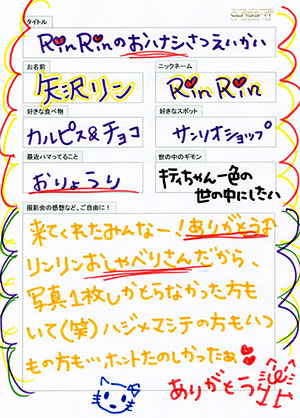 タイトル
RinRinのおハナシさつえいかい
お名前
ニックネーム
矢沢リン
RinRin
好きな食べ物
好きなスポット
カルピス&チョコ
サンリオショップ
最近ハマってること
世の中のギモン
おりょうり
キティちゃん一色の
世の中にしたい
撮影会の感想など、ご自由に!
来てくれたみんなー!ありがとうよ
リンリンおしゃべりさんだから、
写真1枚しかとらなかった方も
いて(笑)ハジメマシテの方もいつ
もの方も…ホントたのしかったぁ
ありがとう